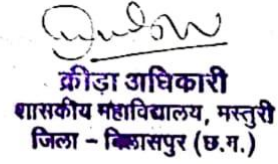 क्रीड़ा अधिकारी
शासकीय महाविद्यालय, मस्तुरी
जिला – बिलासपुर (छ.ग.)